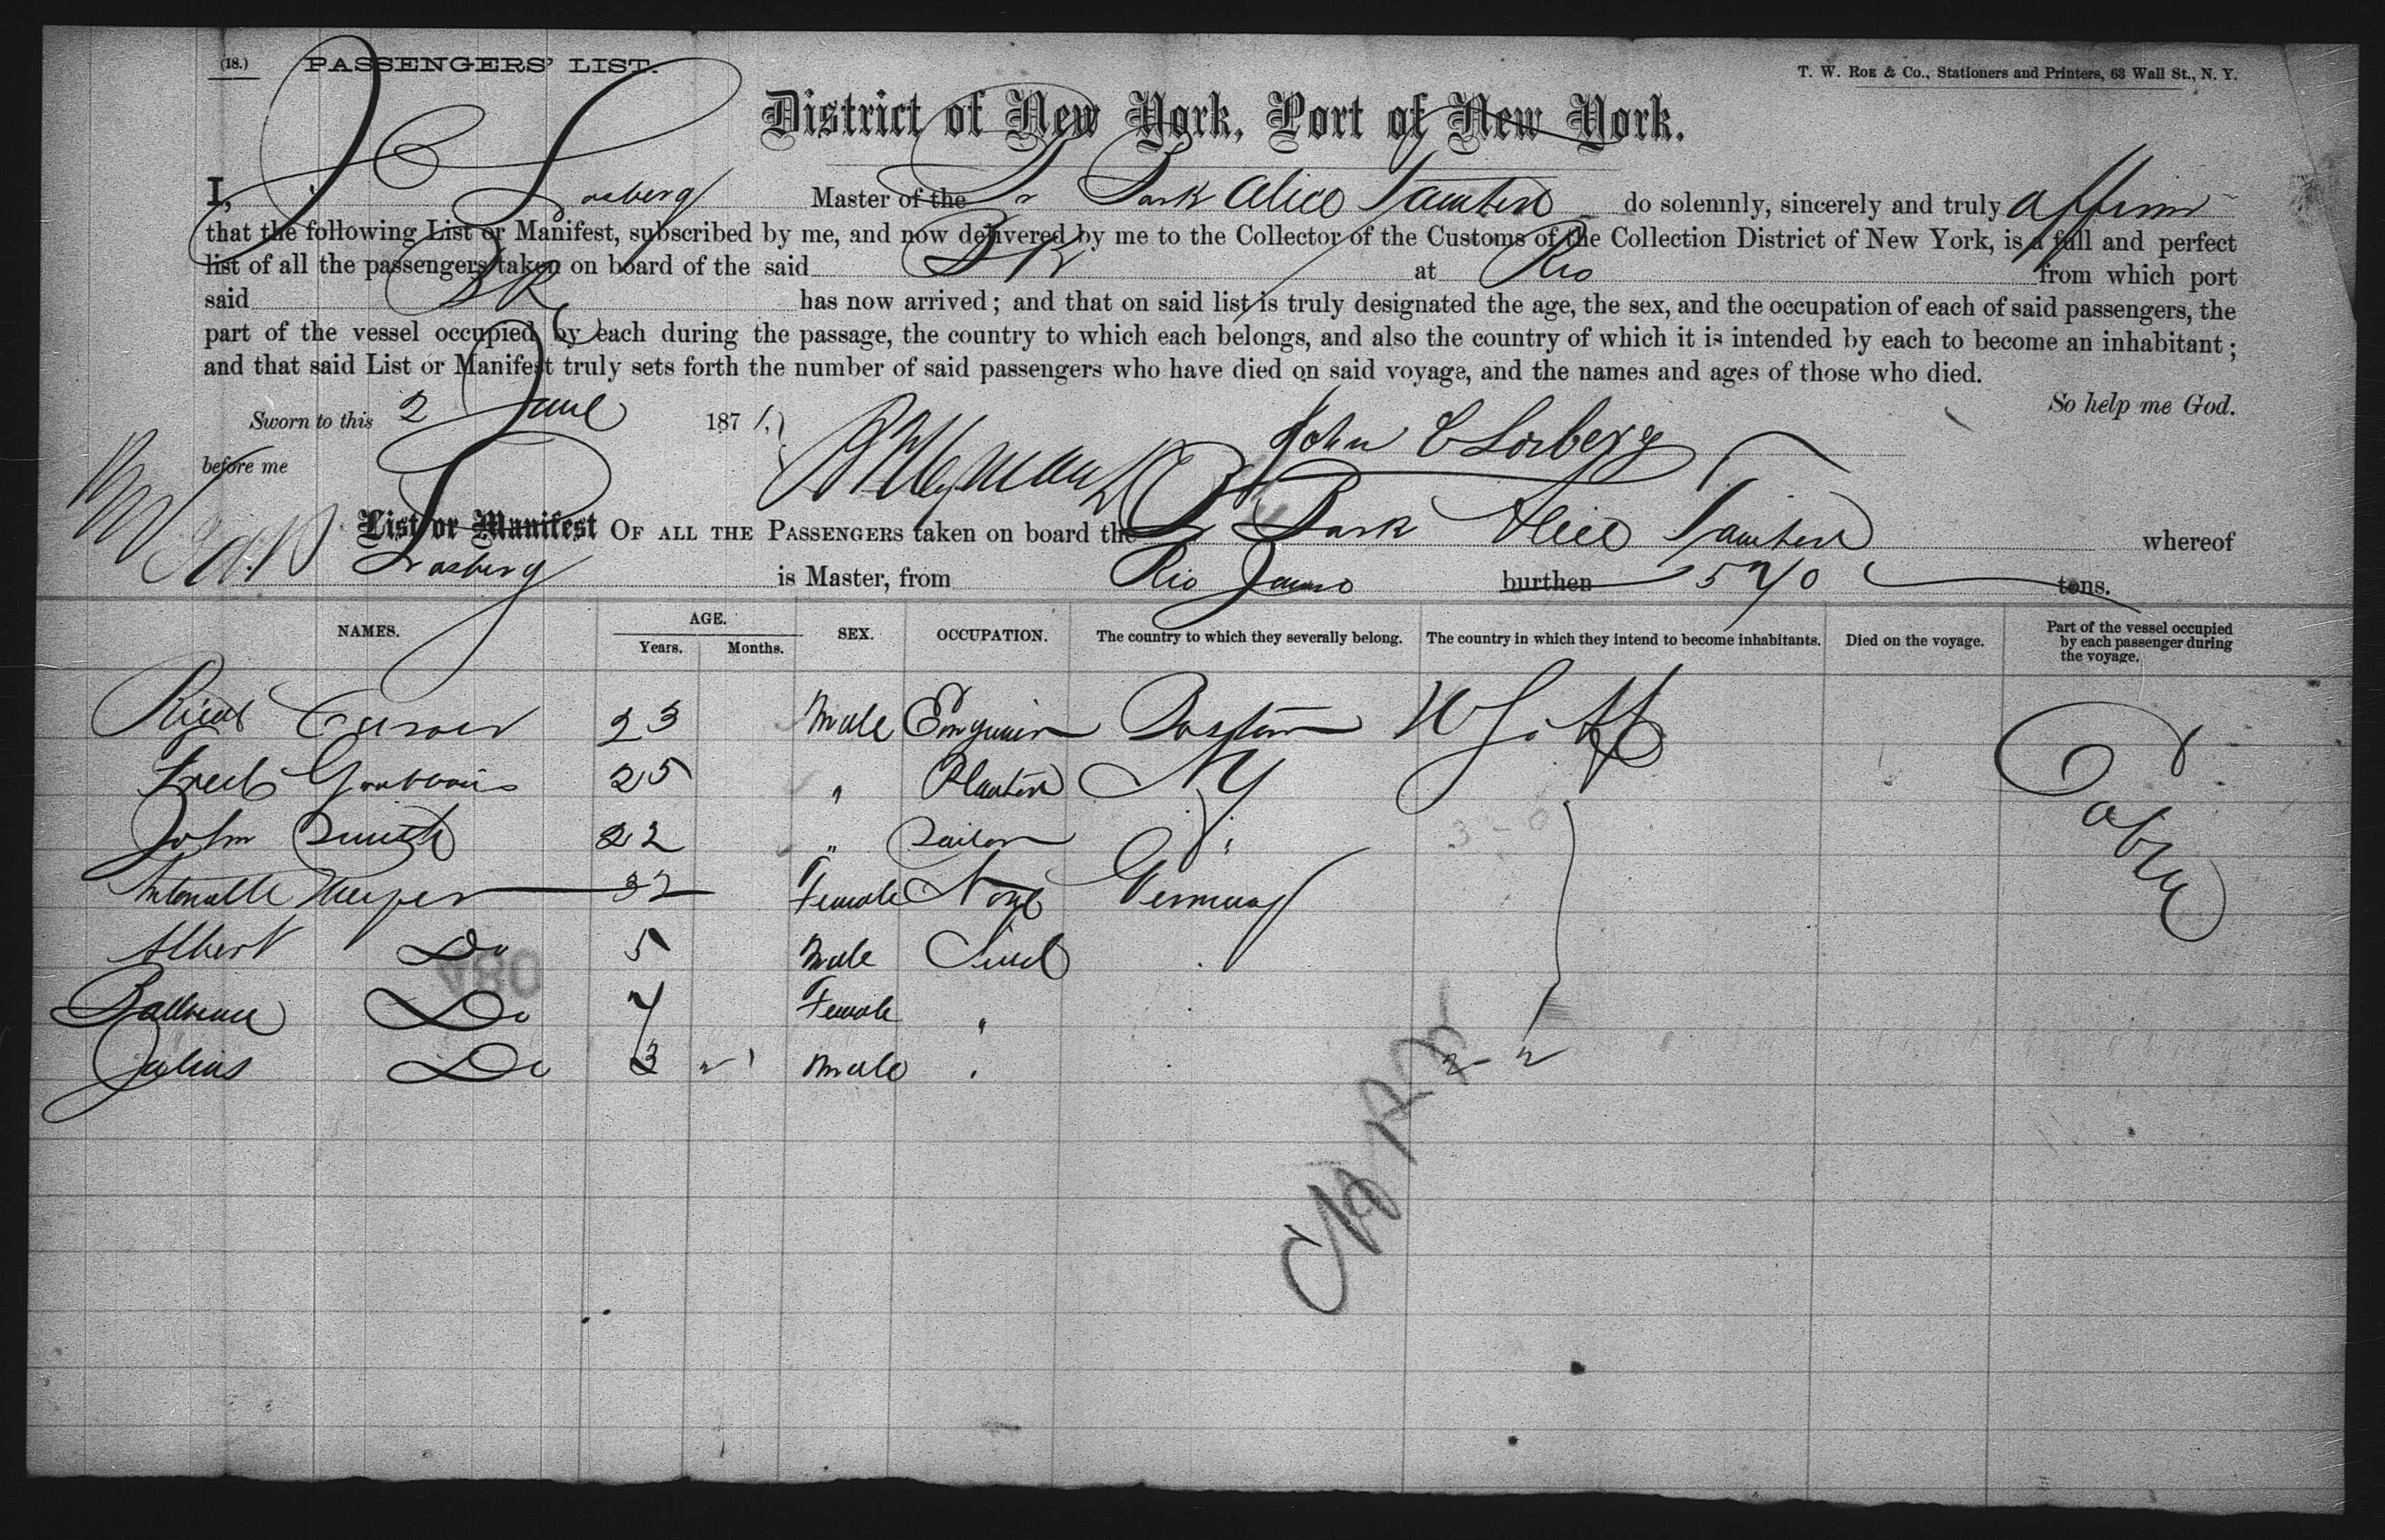 (18.) PASSENGERS' LIST.
T. W. Roe & Co., Stationers and Printers, 63 Wall St., N. Y.
District of New York, Port of New York.
I, J C Losberg Master of the Br Bark Alice Tainter do solemnly, sincerely and truly affirm
that the following List or Manifest, subscribed by me, and now delivered by me to the Collector of the Customs of the Collection District of New York, is a full and perfect
list of all the passengers taken on board of the said BK at Rio from which port
said BK has now arrived; and that on said list is truly designated the age, the sex, and the occupation of each of said passengers, the
part of the vessel occupied by each during the passage, the country to which each belongs, and also the country of which it is intended by each to become an inhabitant;
and that said List or Manifest truly sets forth the number of said passengers who have died on said voyage, and the names and ages of those who died.
So help me God.
Sworn to this 2 June 1871
before me
John C Losberg
List or Manifest OF ALL THE PASSENGERS taken on board the Br Bark Alice Tainter whereof
Losberg is Master, from Rio Janro burthen 570 tons.
NAMES. AGE. Years. Months. SEX. OCCUPATION. The country to which they severally belong. The country in which they intend to become inhabitants. Died on the voyage. Part of the vessel occupied by each passenger during the voyage.
23 Male Boston
Fred 25 " Planter NY
John Smith 22 " Sailor "
32 Female None Germany
Albert Do 5 Male
Do 7 Female "
Julius Do 3 Male
Cabin